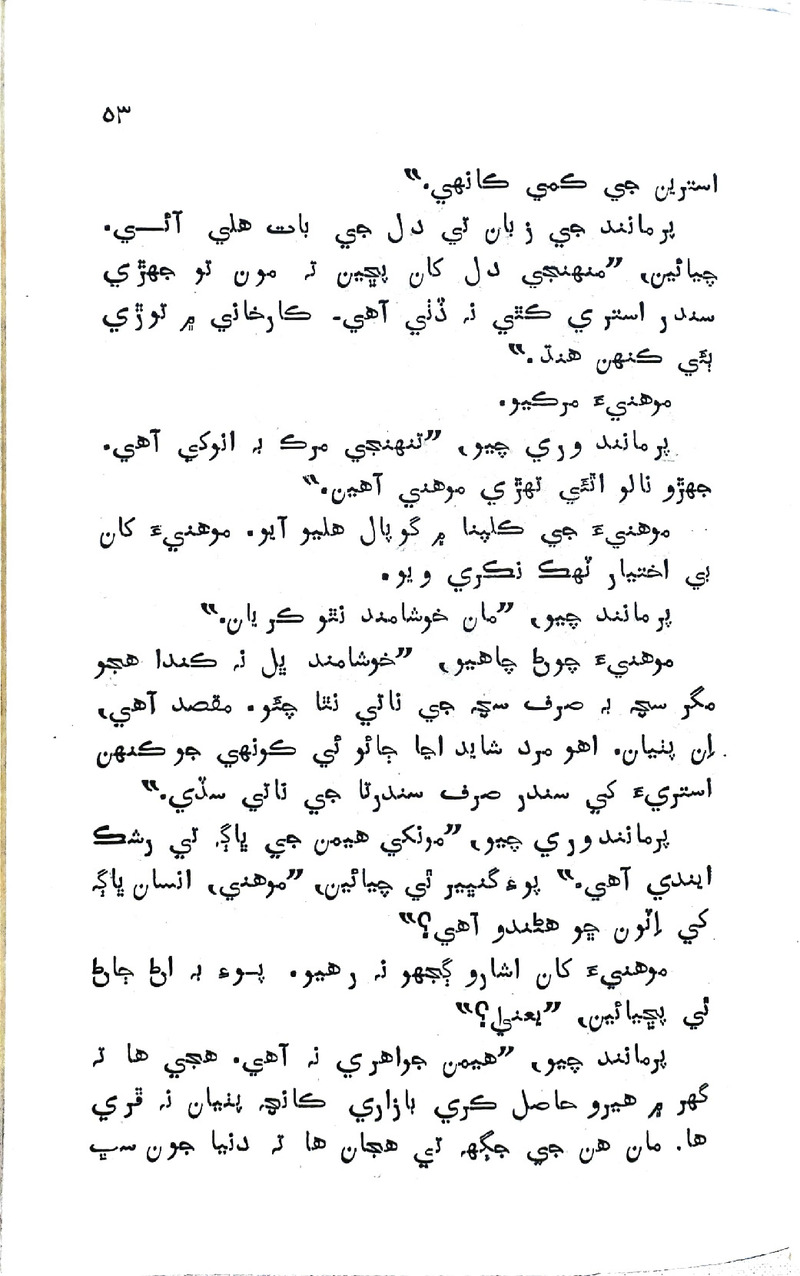 ۵۳
استرين جي ڪمي ڪانهي.“
پرمانند جي زبان تي دل جي بات هلي آئــي.
چيائين، ”منهنجي دل کان پڇين ته مون تو جهڙي
سندر استري ڪٿي نه ڏٺي آهي۔ ڪارخاني ۾ توڙي
ٻئي ڪنهن هنڌ.“
موهنيءَ مرڪيو.
پرمانند وري چيو، ”تنهنجي مرڪ به انوکي آهي.
جهڙو نالو اٿئي تهڙي موهني آهين.“
موهنيءَ جي ڪلپنا ۾ گوپال هليو آيو. موهنيءَ کان
بي اختيار ٽهڪ نڪري ويو.
پرمانند چيو، ”مان خوشامند نٿو ڪريان.“
موهنيءَ چوڻ چاهيو، ”خوشامند ڀل نه ڪندا هجو
مگر سچ به صرف سچ جي ناتي نٿا چئو. مقصد آهي،
اِن پٺيان. اهو مرد شايد اڃا ڄائو ئي ڪونهي جو ڪنهن
استريءَ کي سندر صرف سندرتا جي ناتي سڏي.“
پرمانند وري چيو، ”مونکي هيمن جي ڀاڳ تي رشڪ
ايندي آهي.“ پوءِ گنڀير ٿي چيائين، ”موهني، انسان ڀاڳ
کي اِئون ڇو هڻندو آهي؟“
موهنيءَ کان اشارو ڳجهو نه رهيو. پـوءِ به اڻ ڄاڻ
ٿي پڇيائين، ”يعني؟“
پرمانند چيو، ”هيمن جواهري نه آهي. هجي ها ته
گهر ۾ هيرو حاصل ڪري بازاري ڪانچ پٺيان نه ڦري
ها. مان هن جي جڳهه تي هجان ها ته دنيا جون سڀ